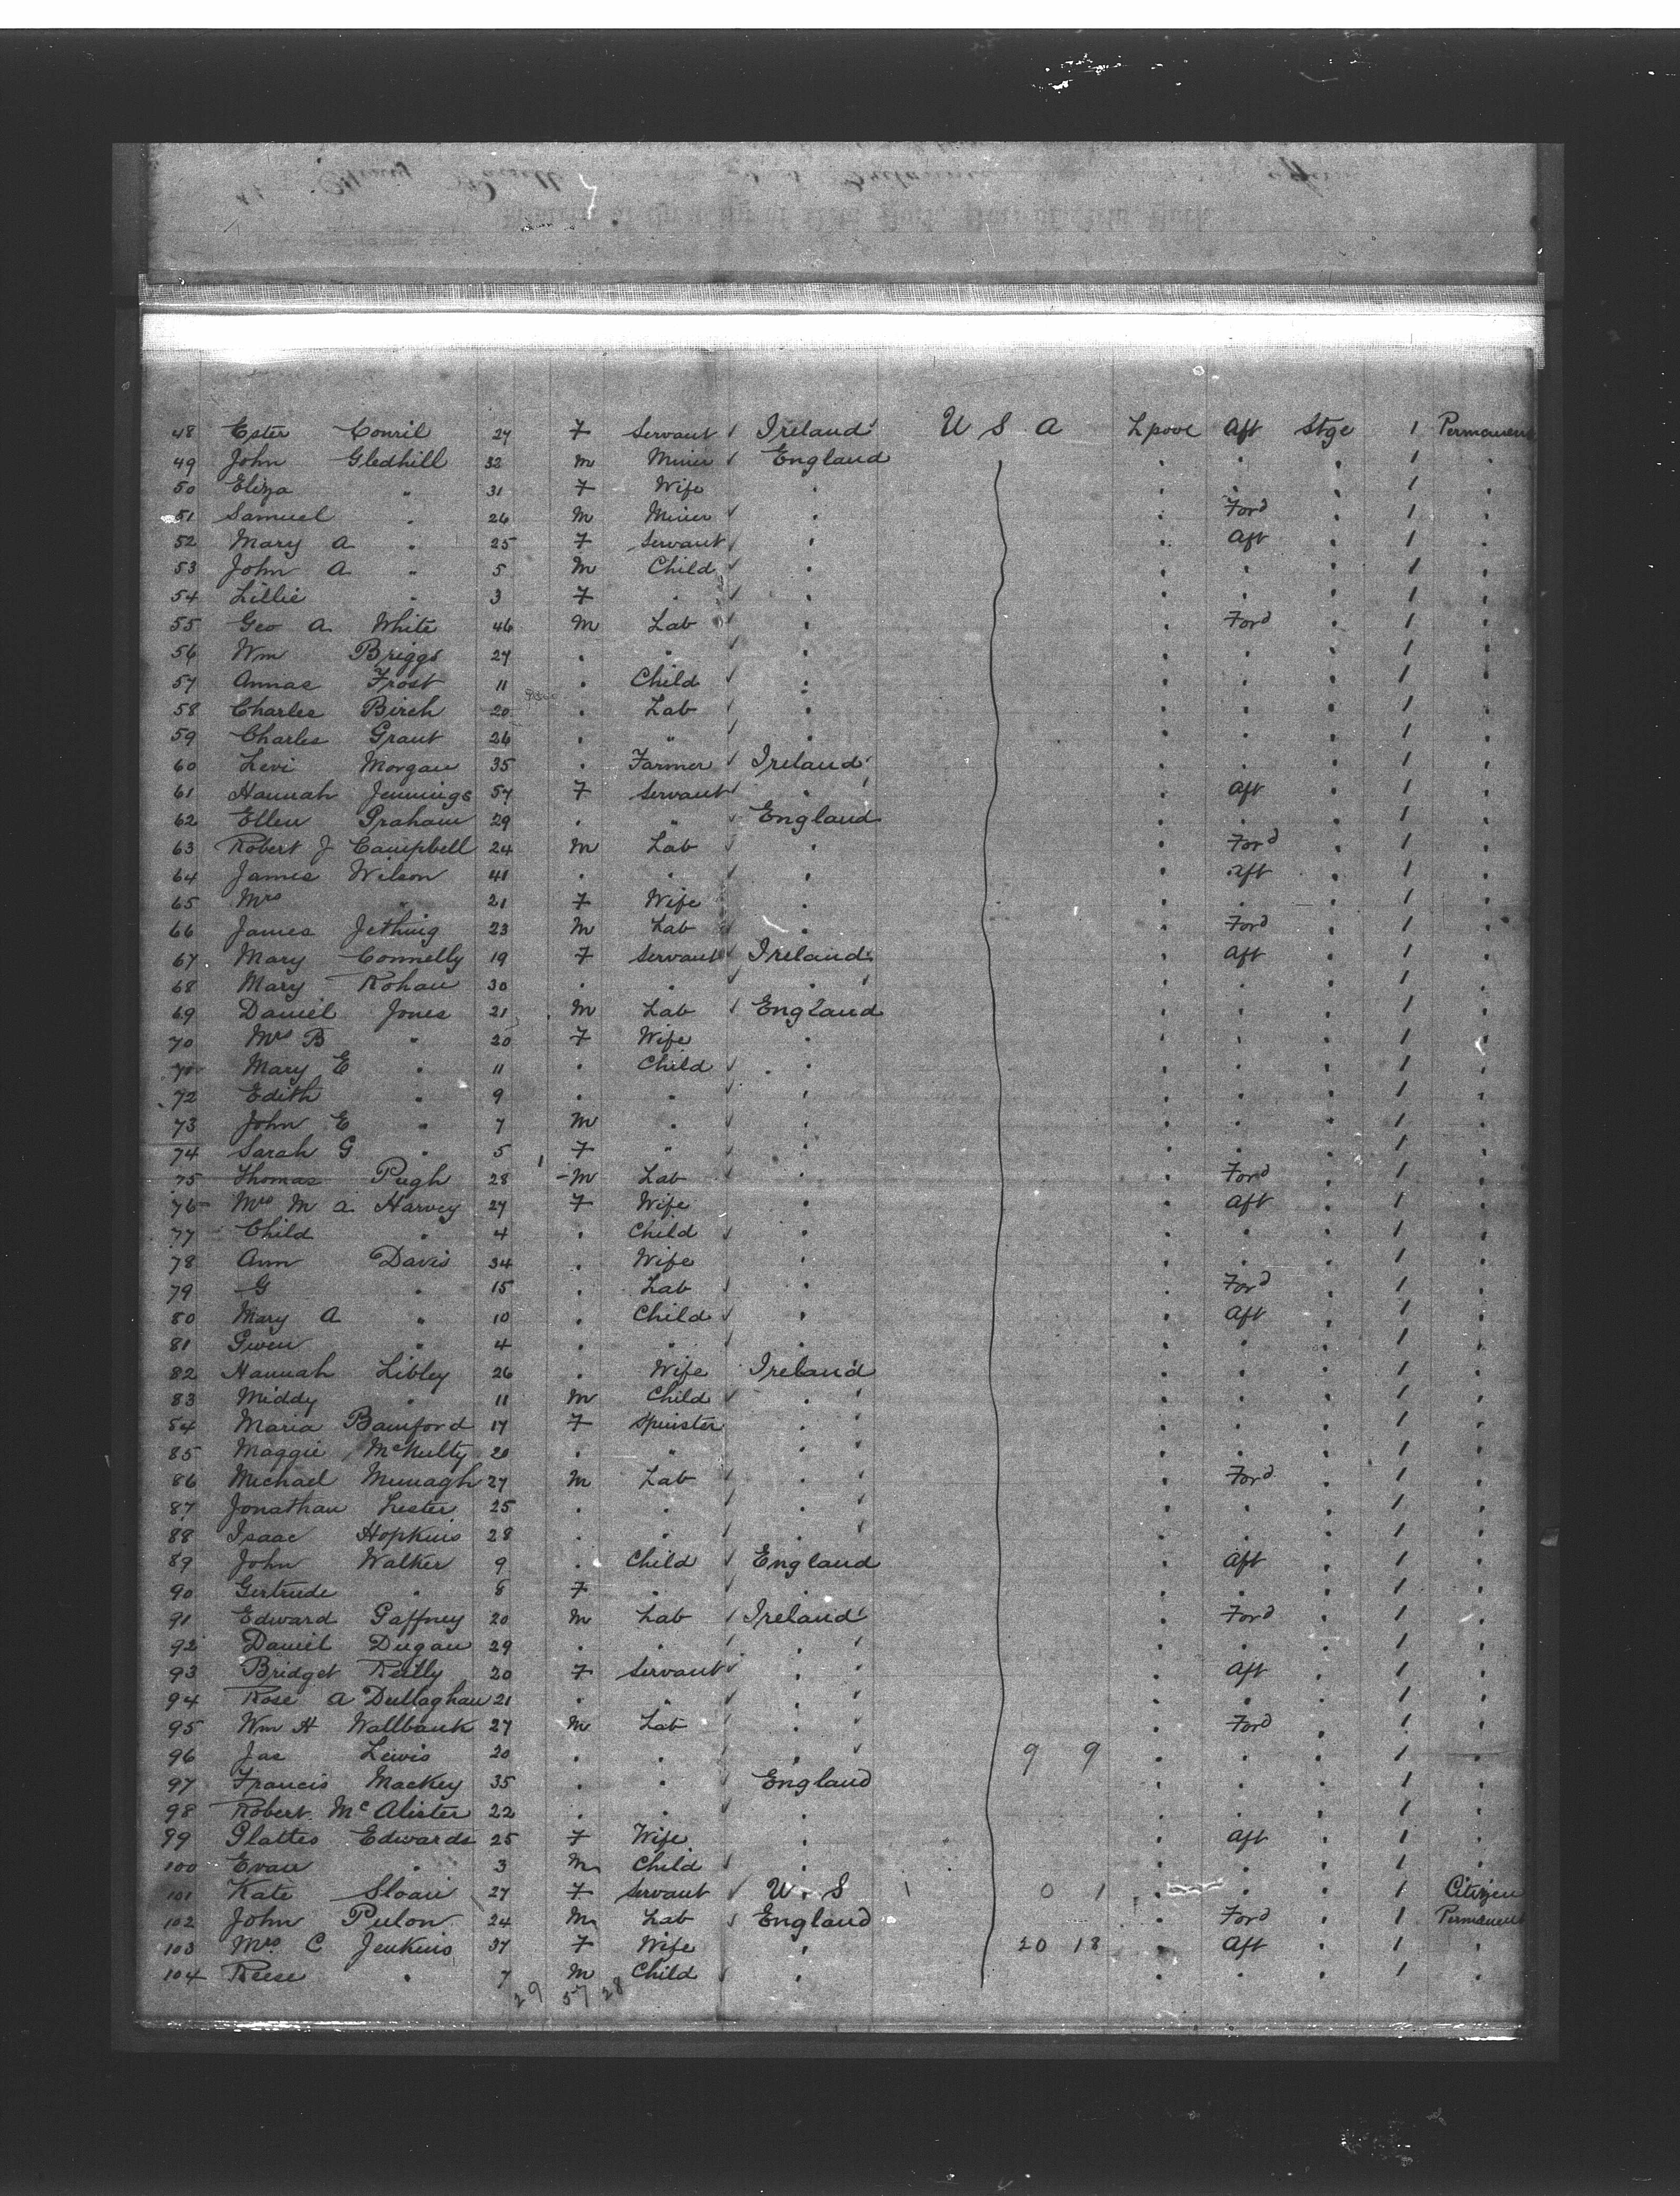 48 Ester Conril 27 F Servant √ Ireland U S A Lpool Aft Stge 1 Permanent
49 John Gledhill 32 M Miner √ England . . . 1 .
50 Eliza " 31 F Wife . . . . 1 .
51 Samuel . 26 M Miner √ . . Ford . 1 .
52 Mary A . 25 F Servant √ . . Aft . 1 .
53 John A " 5 M Child √ . . . . 1 .
54 Lillie . 3 F . √ . . . . 1 .
55 Geo A White 46 M Lab √ . . Ford . 1 .
56 Wm Briggs 27 . " √ . . . . 1 .
57 Annas Frost 11 . Child √ . . . . 1 .
58 Charles Birch 20 . Lab √ . . . . 1 .
59 Charles Grant 26 . " √ . . . . 1 .
60 Levi Morgan 35 . Farmer √ Ireland . . . 1 .
61 Hannah Jennings 57 F Servant √ . . Aft . 1 .
62 Ellen Graham 29 . " √ England . . . 1 .
63 Robert J Campbell 24 M Lab √ . . Ford . 1 .
64 James Wilson 41 . . √ . . Aft . 1 .
65 Mrs " 21 F Wife . . . . 1 .
66 James Jething 23 M Lab √ . . Ford . 1 .
67 Mary Connelly 19 F Servant √ Ireland . Aft . 1 .
68 Mary Rohan 30 . . √ . . . . 1 .
69 Daniel Jones 21 M Lab √ England . . . 1 .
70 Mrs B " 20 F Wife . . . . 1 .
71 Mary E . 11 . Child √ . . . . 1 .
72 Edith " 9 . " √ . . . . 1 .
73 John E " 7 M . √ . . . . 1 .
74 Sarah G . 5 F " √ . . . . 1 .
75 Thomas Pugh 28 M Lab √ . . Ford . 1 .
76 Mrs M A Harvey 27 F Wife . . Aft . 1 .
77 Child " 4 . Child √ . . . . 1 .
78 Ann Davis 34 . Wife . . . . 1 .
79 G . 15 . Lab √ . . Ford . 1 .
80 Mary A " 10 . Child √ . . Aft . 1 .
81 Gwen " 4 . . √ . . . . 1 .
82 Hannah Libley 26 . Wife Ireland . . . 1 .
83 Middy . 11 M Child √ . . . . 1 .
84 Maria Bamford 17 F Spinster . . . . 1 .
85 Maggie McNulty 20 . " . . . . 1 .
86 Michael Munagh 27 M Lab √ . . Ford . 1 .
87 Jonathan Lester 25 . . √ . . . . 1 .
88 Isaac Hopkins 28 . . √ . . . . 1 .
89 John Walker 9 . Child √ England . Aft . 1 .
90 Gertrude " 8 F . √ . . . . 1 .
91 Edward Gaffney 20 M Lab √ Ireland . Ford . 1 .
92 Daniel Dugan 29 . . √ . . . . 1 .
93 Bridget Reilly 20 F Servant √ . . Aft . 1 .
94 Rose A Dullaghan 21 . " √ . . . . 1 .
95 Wm H Wallbank 27 M Lab √ . . Ford . 1 .
96 Jas Lewis 20 . . √ . 9 9 . . . 1 .
97 Francis Mackey 35 . . √ England . . . 1 .
98 Robert McAlister 22 . . √ . . . . 1 .
99 Edwards 25 F Wife . . Aft . 1 .
100 Evan . 3 M Child √ . . . . 1 .
101 Kate Sloan 27 F Servant √ U. S 1 0 1 . . . 1 Citizen
102 John Pulon 24 M Lab √ England . Ford . 1 Permanent
103 Mrs C Jenkins 37 F Wife . 20 18 . Aft . 1 .
104 Reese . 7 M Child √ . . . . 1 .
29 57 28